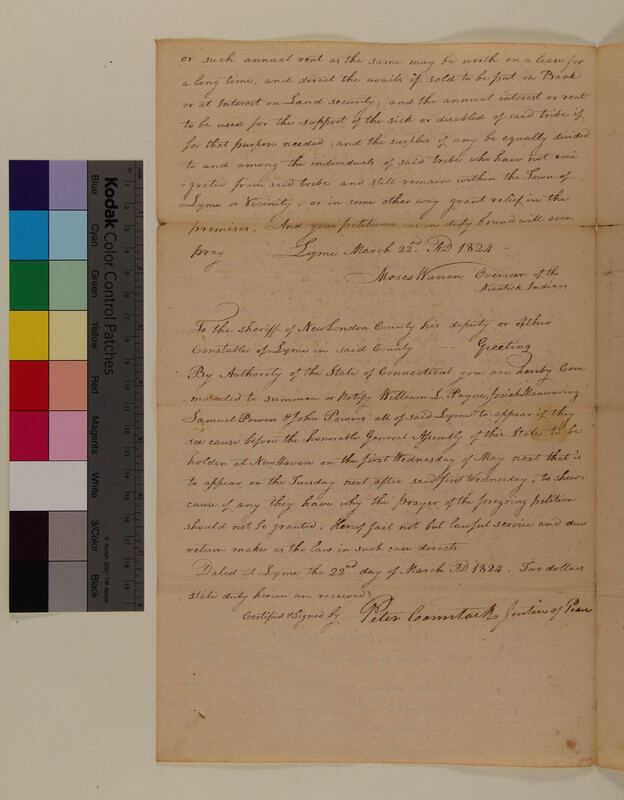 or such annual rent as the same may be worth on a lease for
a long time, and direct the avails if sold to be put in Bank
or at Interest on Land security, and the annual interest or rent
to be used for the support of the sick or disabled of said tribe if
for that purpose needed, and the surplus if any be equally divided
to and among the individuals of said tribe who have not emi
-grated from said tribe and still remain within the Town of
Lyme or Vicinity, or in some other way grant relief in the
premises. And your petitioner as in duty bound will ever
pray Lyme March 22nd AD 1824 -
Moses Warren Overseer of the
Niantick Indians
To the sheriff of New London County his deputy or either
Constable of Lyme in said County Greeting
By Authority of the State of Connecticut you are hereby Com
manded to summon or Notify William L. Payne, Josiah Manwaring
Samuel Powers & John Powers all of said Lyme to appear if they
see cause before the honorable General Assembly of this State to be
holden at New Haven on the first Wednesday of May next that is
to appear on the Tuesday next after said first Wednesday, to shew
cause if any they have why the prayer of the foregoing petition
should not be granted. Hereof fail not but lawful service and due
return make as the law in such case directs
Dated at Lyme the 22nd day of March AD 1824. Two dollars
state duty hereon are received
Certified & Signed by Peter Comstock Justice of Peace
Kodak Color Control Patches
Blue
Cyan
Green
Yellow
Red
Magenta
White
3/Color
Black